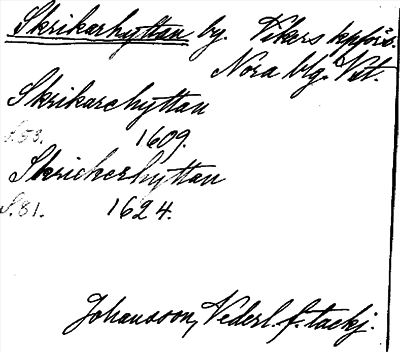 Skrikarhyttan by. Vikers kpförs.
Nora blg. Vst.
Skrikarehyttan
S.53. 1609.
Skrickerhyttan
S.81. 1624.
Johansson, Nederl. f. tackj.